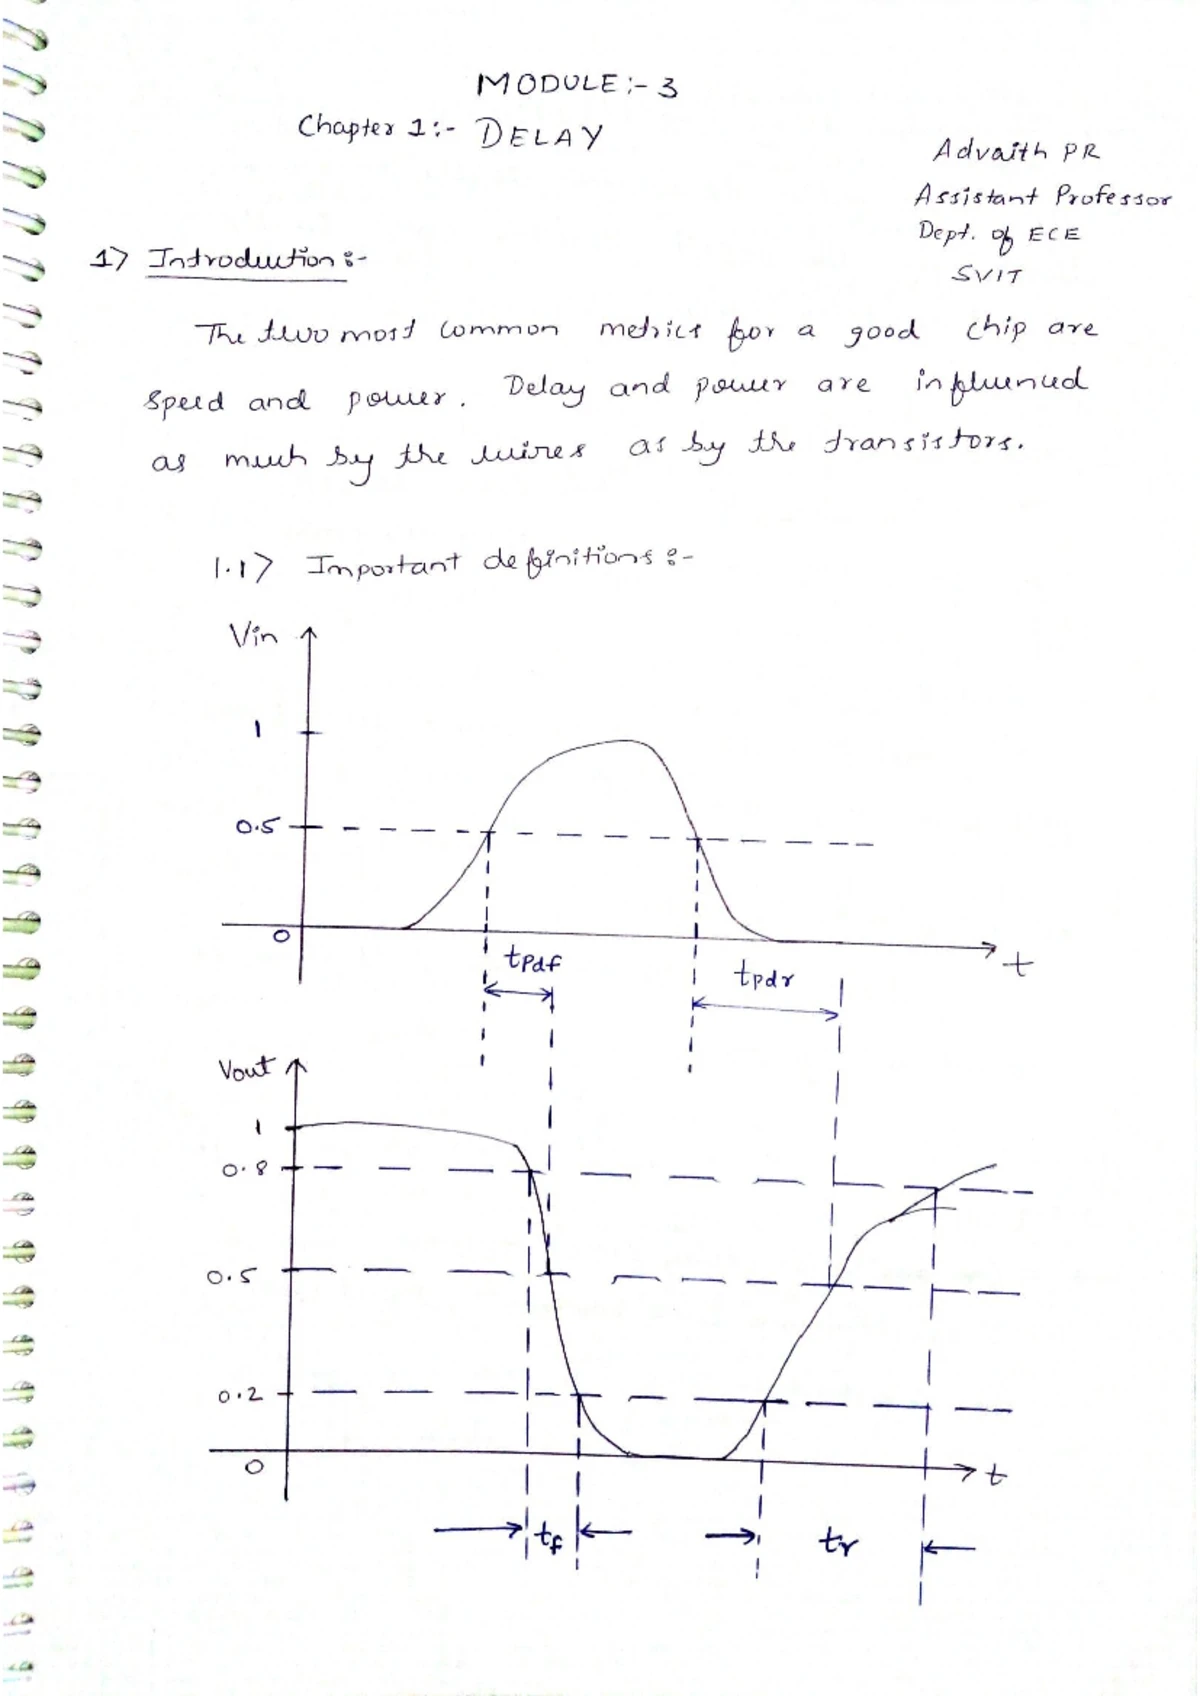 MODULE:- 3
Chapter 1:- DELAY
Advaith PR
Assistant Professor
Dept. of ECE
SVIT
1> Introduction:-
The two most common metrics for a good chip are
speed and power. Delay and power are influenced
as much by the wires as by the transistors.
1.1> Important definitions:-
Vin
1
0.5
0
t
tpdf
tpdr
Vout
1
0.8
0.5
0.2
0
t
tf
tr